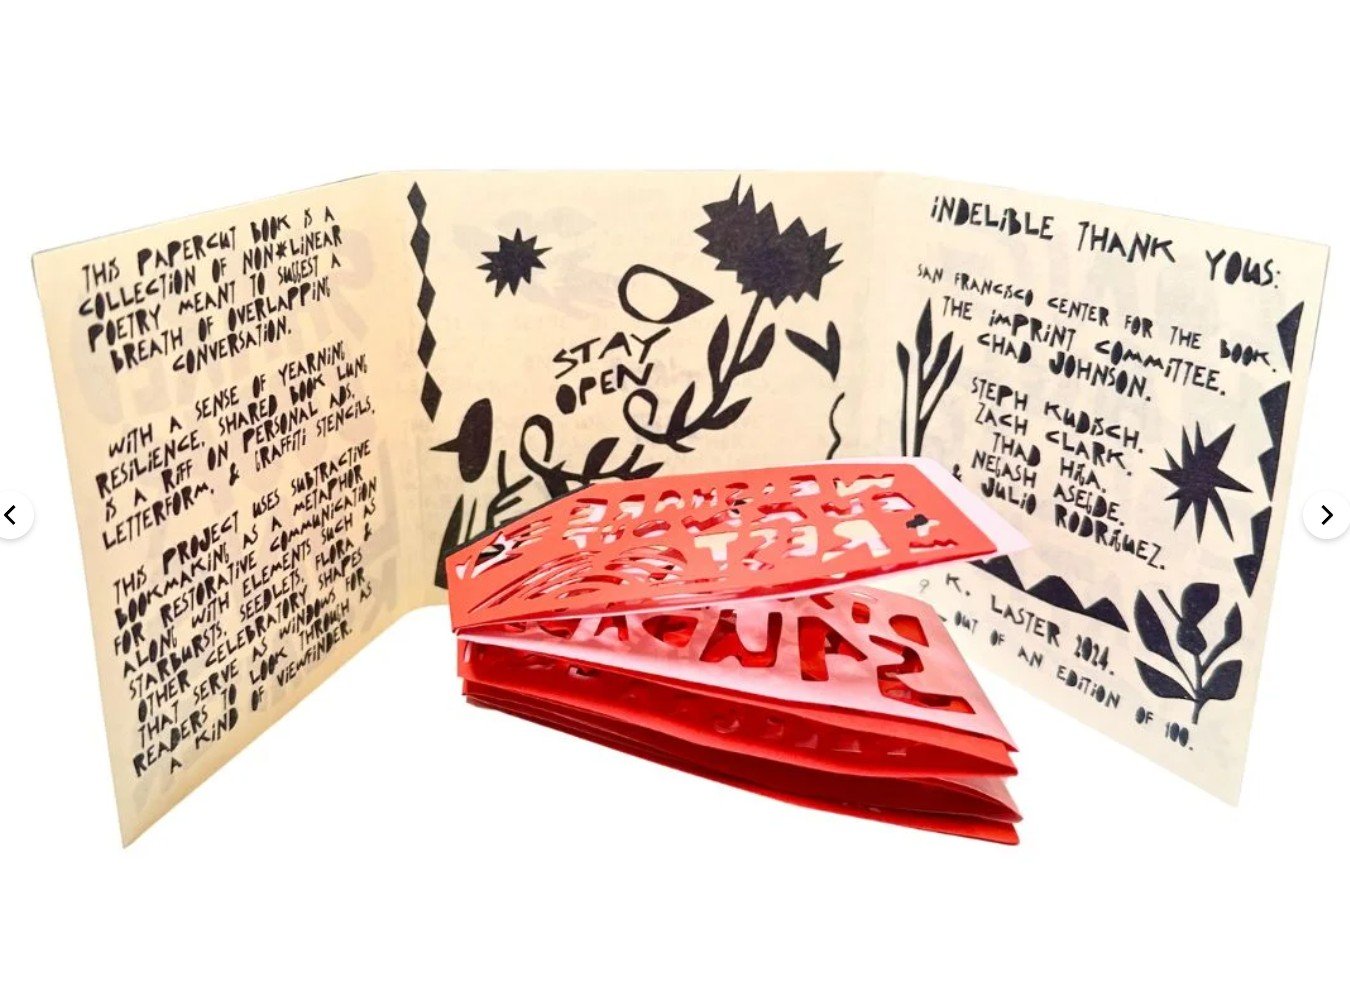 THIS PAPERCUT BOOK IS A
COLLECTION OF NON*LINEAR
POETRY MEANT TO SUGGEST A
BREATH OF OVERLAPPING
CONVERSATION.
WITH A SENSE OF YEARNING
RESILIENCE, SHARED BOOK LUNG
IS A RIFF ON PERSONAL ADS,
LETTERFORM, & GRAFFITI STENCILS.
THIS PROJECT USES SUBTRACTIVE
BOOKMAKING AS A METAPHOR
FOR RESTORATIVE COMMUNICATION
ALONG WITH ELEMENTS SUCH AS
STARBURSTS, SEEDLETS, FLORA &
OTHER CELEBRATORY SHAPES
THAT SERVE AS WINDOWS FOR
READERS TO LOOK THROUGH AS
A KIND OF VIEWFINDER.
STAY
OPEN
INDELIBLE THANK YOUS:
SAN FRANCISCO CENTER FOR THE BOOK.
THE IMPRINT COMMITTEE.
CHAD JOHNSON.
STEPH KUDISCH.
ZACH CLARK.
THAD HIGA.
NEGASH ASEGDE.
& JULIO RODRÍGUEZ.
K. LASTER 2024.
OUT OF AN EDITION OF 100.